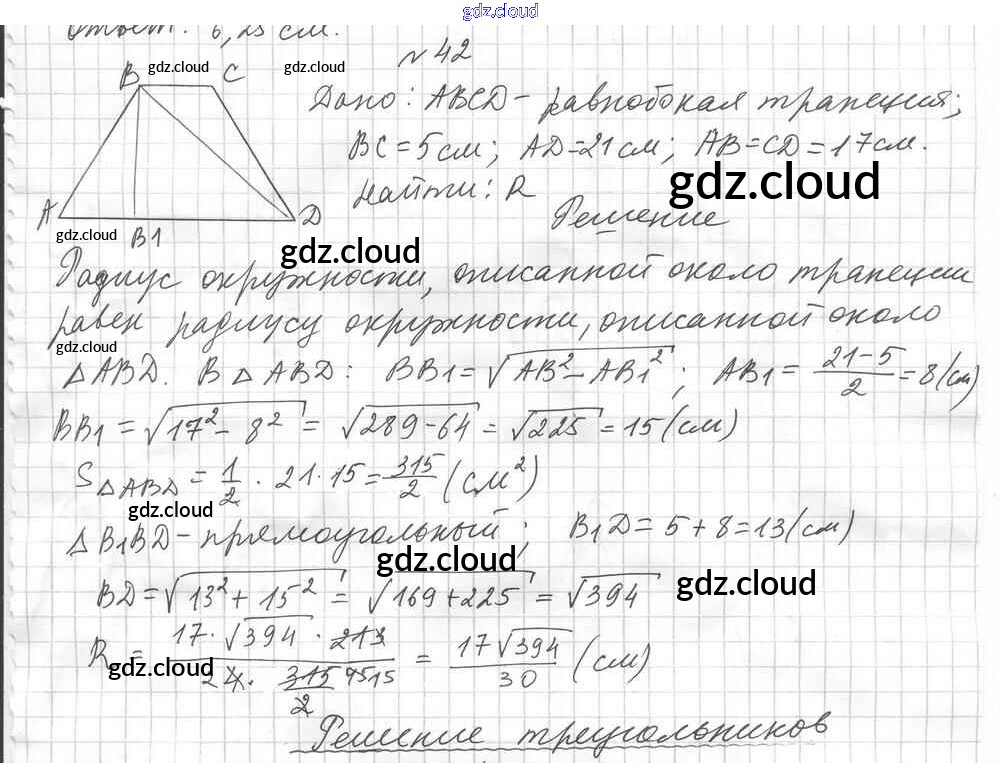 gdz.cloud
Ответ: 6,25 см.
№ 42
B gdz.cloud C gdz.cloud
Дано: ABCD – равнобокая трапеция;
BC = 5 см; AD = 21 см; AB = CD = 17 см.
Найти: R gdz.cloud
A D Решение
gdz.cloud B1 gdz.cloud
Радиус окружности, описанной около трапеции
равен радиусу окружности, описанной около
gdz.cloud
△ABD. В △ABD: BB1 = √(AB² – AB1²); AB1 = (21 – 5)/2 = 8 (см)
BB1 = √(17² – 8²) = √(289 – 64) = √225 = 15 (см)
S△ABD = 1/2 · 21 · 15 = 315/2 (см²)
gdz.cloud
△B1BD – прямоугольный; B1D = 5 + 8 = 13 (см)
gdz.cloud
BD = √(13² + 15²) = √(169 + 225) = √394 gdz.cloud
= 17√394/30 (см)
gdz.cloud
Решение треугольников